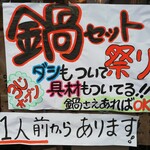 鍋セット
祭り
ダシもついて
具材もついてる!!
鍋さえあればOK
1人前からあります。